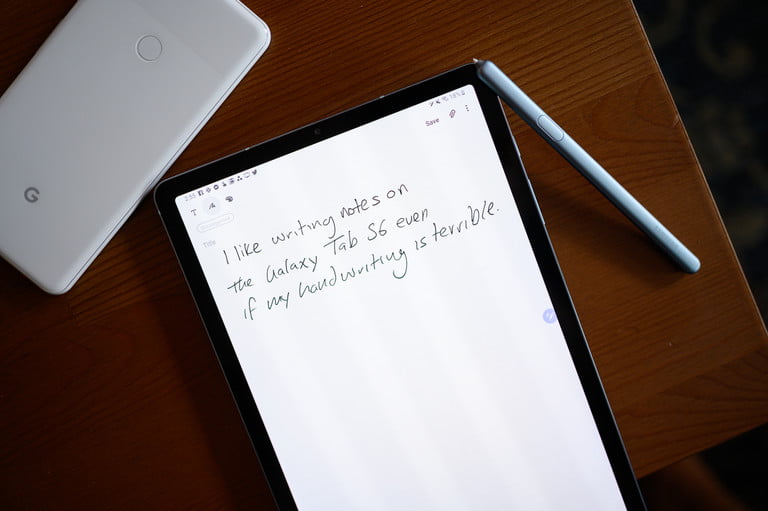 2:55
Save
T
Title
I like writing notes on
the Galaxy Tab S6 even
if my handwriting is terrible.
G